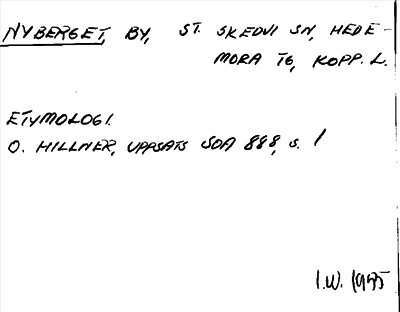 NYBERGET, BY, ST. SKEDVI SN, HEDE-
MORA TG, KOPP. L.
ETYMOLOGI.
O. HILLNER, UPPSATS SOA 888, S. 1
I.W. 1975